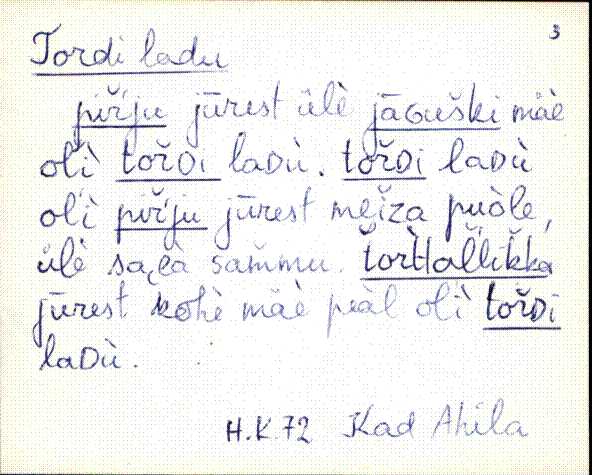 3
Tordi ladu
piř́ju jūrest ülè jāGuški mäè
olì tořDi laDù. tořDi laDù
olì piř́ju jūrest mẽiza puòle,
ülè saea sam̆mu. tòrtlallik̆ka
jūrest kohè mäè peàl olì tořDi
laDù.
H.K.72 Kad Ahila